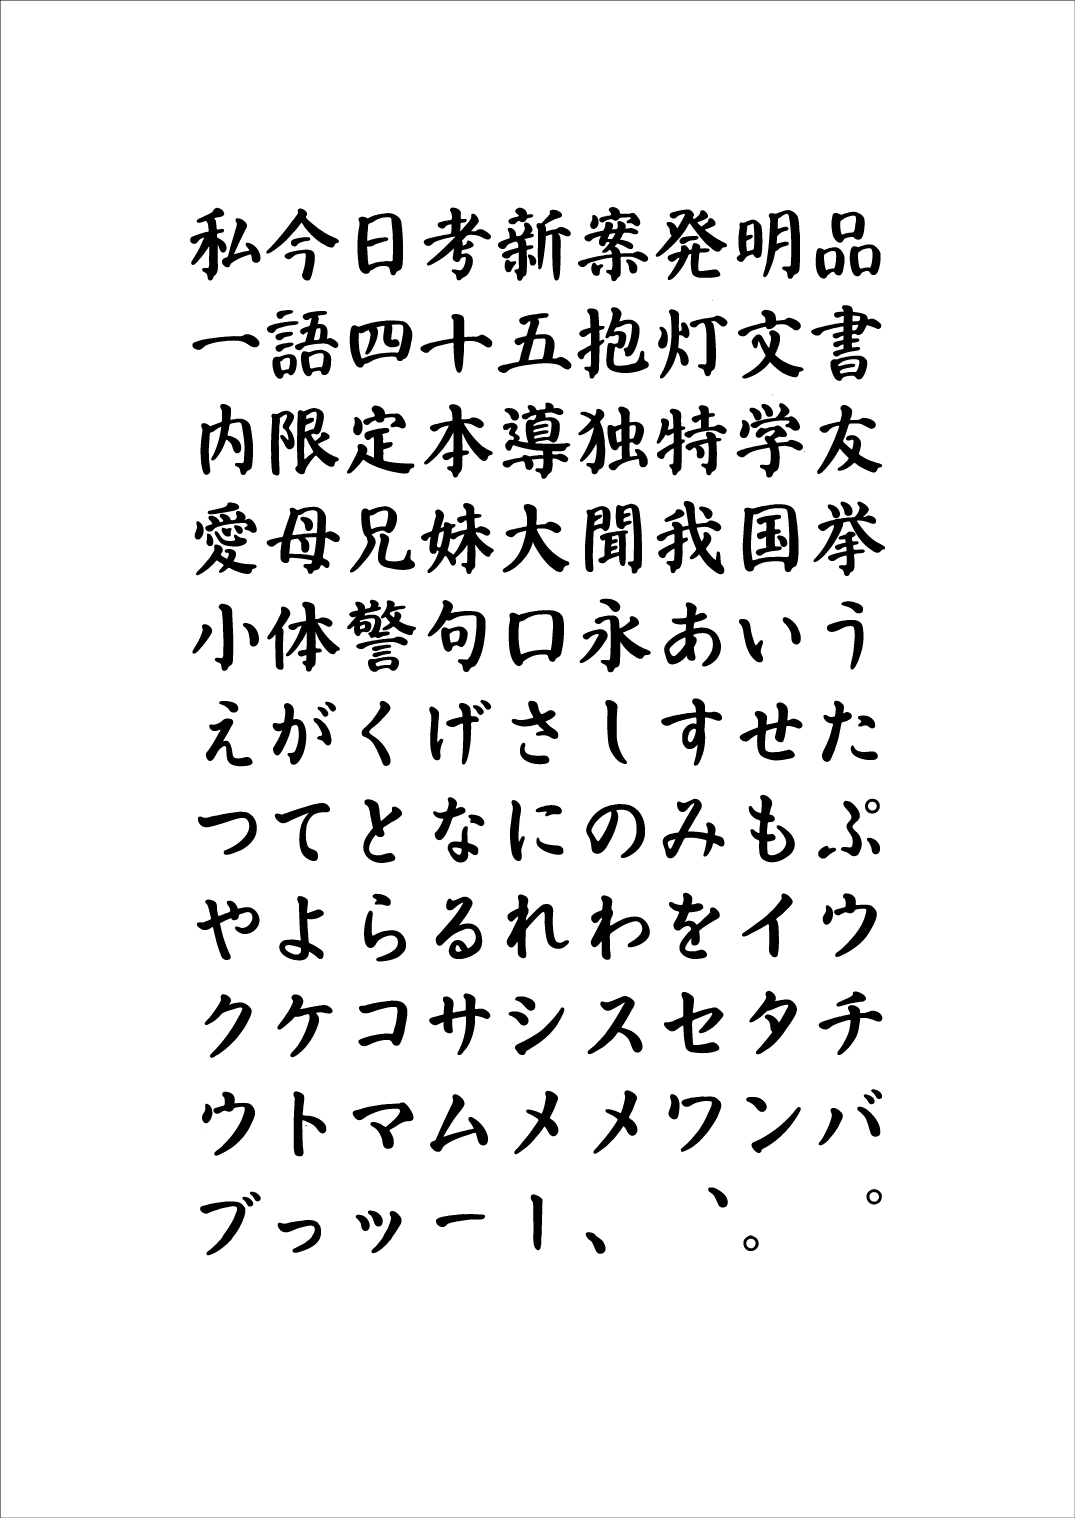 私今日考新案発明品
一語四十五抱灯文書
内限定本導独特学友
愛母兄妹大聞我国挙
小体警句口永あいう
えがくげさしすせた
つてとなにのみもぷ
やよらるれわをイウ
クケコサシスセタチ
ウトマムメメワンバ
ブっッー｜、、。。